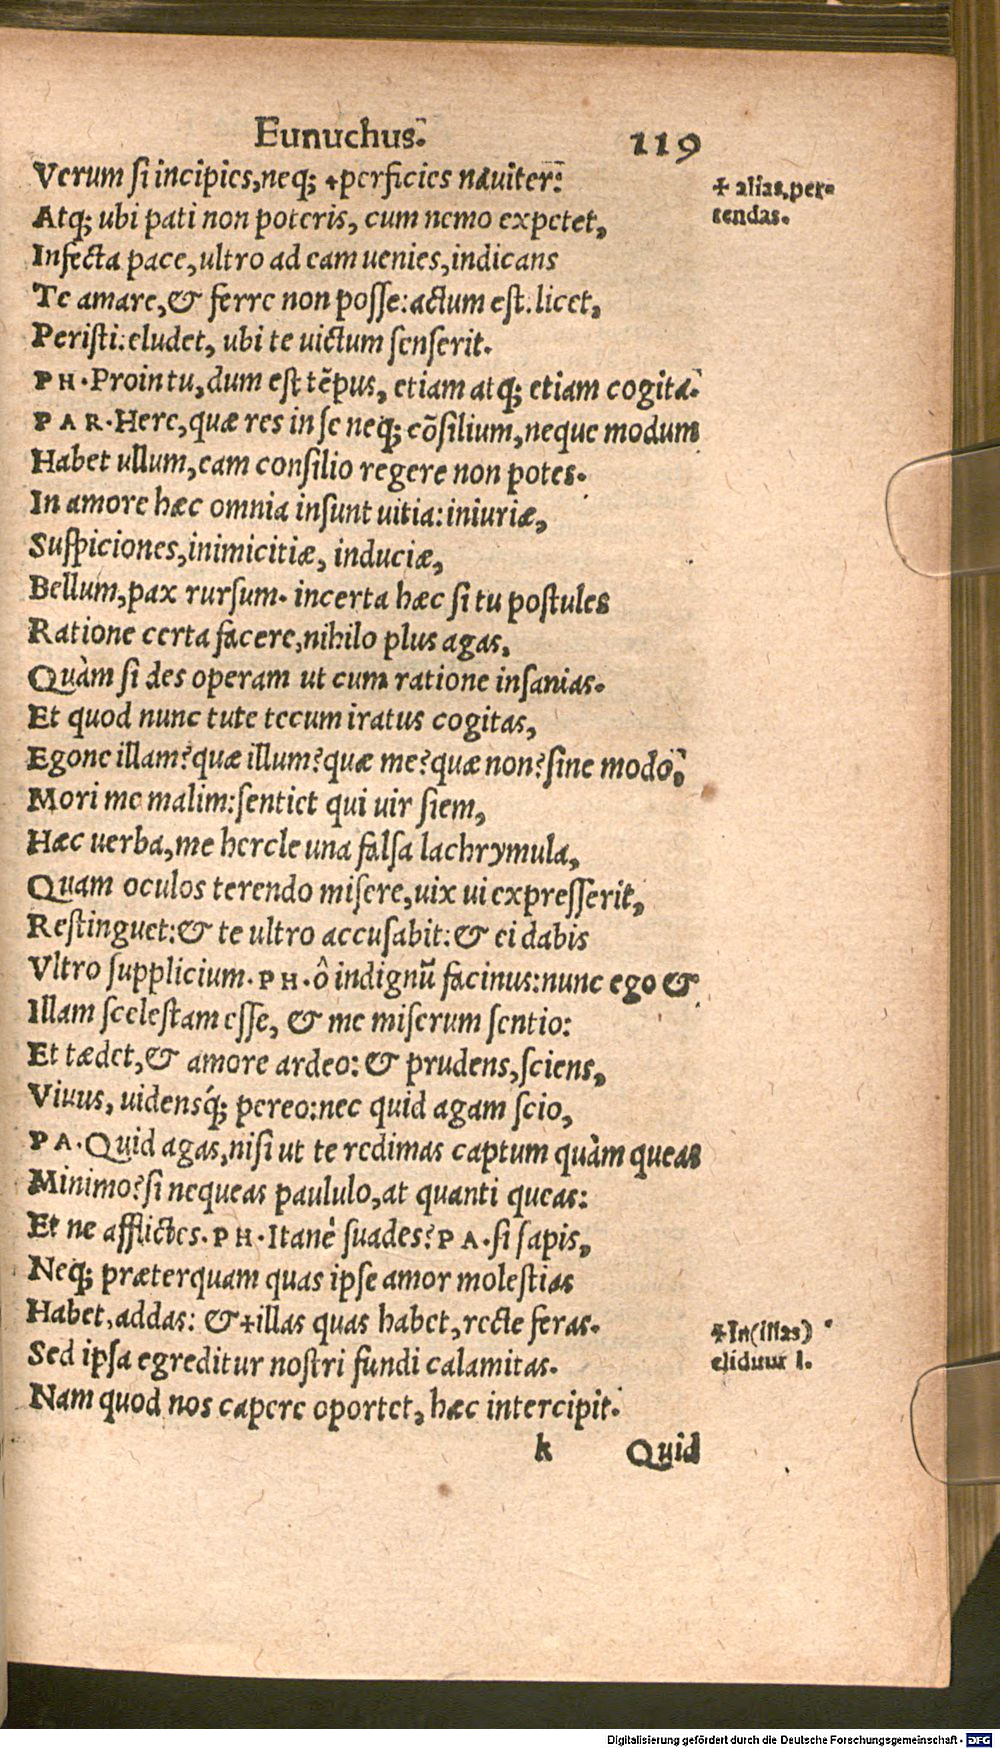 Eunuchus. 119
Verum si incipies, neq; ✢perficies nauiter:
✢ alias, per-
tendas.
Atq; ubi pati non poteris, cum nemo expetet,
Infecta pace, ultro ad eam uenies, indicans
Te amare, & ferre non posse: actum est. licet,
Peristi: eludet, ubi te uictum senserit.
PH. Proin tu, dum est tẽpus, etiam atq; etiam cogita.
PAR. Here, quæ res in se neq; cõsilium, neque modum
Habet ullum, eam consilio regere non potes.
In amore hæc omnia insunt uitia: iniuriæ,
Suspiciones, inimicitiæ, induciæ,
Bellum, pax rursum. incerta hæc si tu postules
Ratione certa facere, nihilo plus agas,
Quàm si des operam ut cum ratione insanias.
Et quod nunc tute tecum iratus cogitas,
Egone illam? quæ illum? quæ me? quæ non? sine modò,
Mori me malim: sentiet qui uir siem,
Hæc uerba, me hercle una falsa lachrymula,
Quam oculos terendo misere, uix ui expresserit,
Restinguet: & te ultro accusabit: & ei dabis
Vltro supplicium. PH. ô indignũ facinus: nunc ego &
Illam scelestam esse, & me miserum sentio:
Et tædet, & amore ardeo: & prudens, sciens,
Viuus, uidensq́; pereo: nec quid agam scio,
PA. Quid agas, nisi ut te redimas captum quàm queas
Minimo? si nequeas paululo, at quanti queas:
Et ne afflictes. PH. Itanè suades? PA. si sapis,
Neq; præterquam quas ipse amor molestias
Habet, addas: & ✢illas quas habet, recte feras.
✢In (illas)
eliduur l.
Sed ipsa egreditur nostri fundi calamitas.
Nam quod nos capere oportet, hæc intercipit.
k Quid
Digitalisierung gefördert durch die Deutsche Forschungsgemeinschaft - DFG